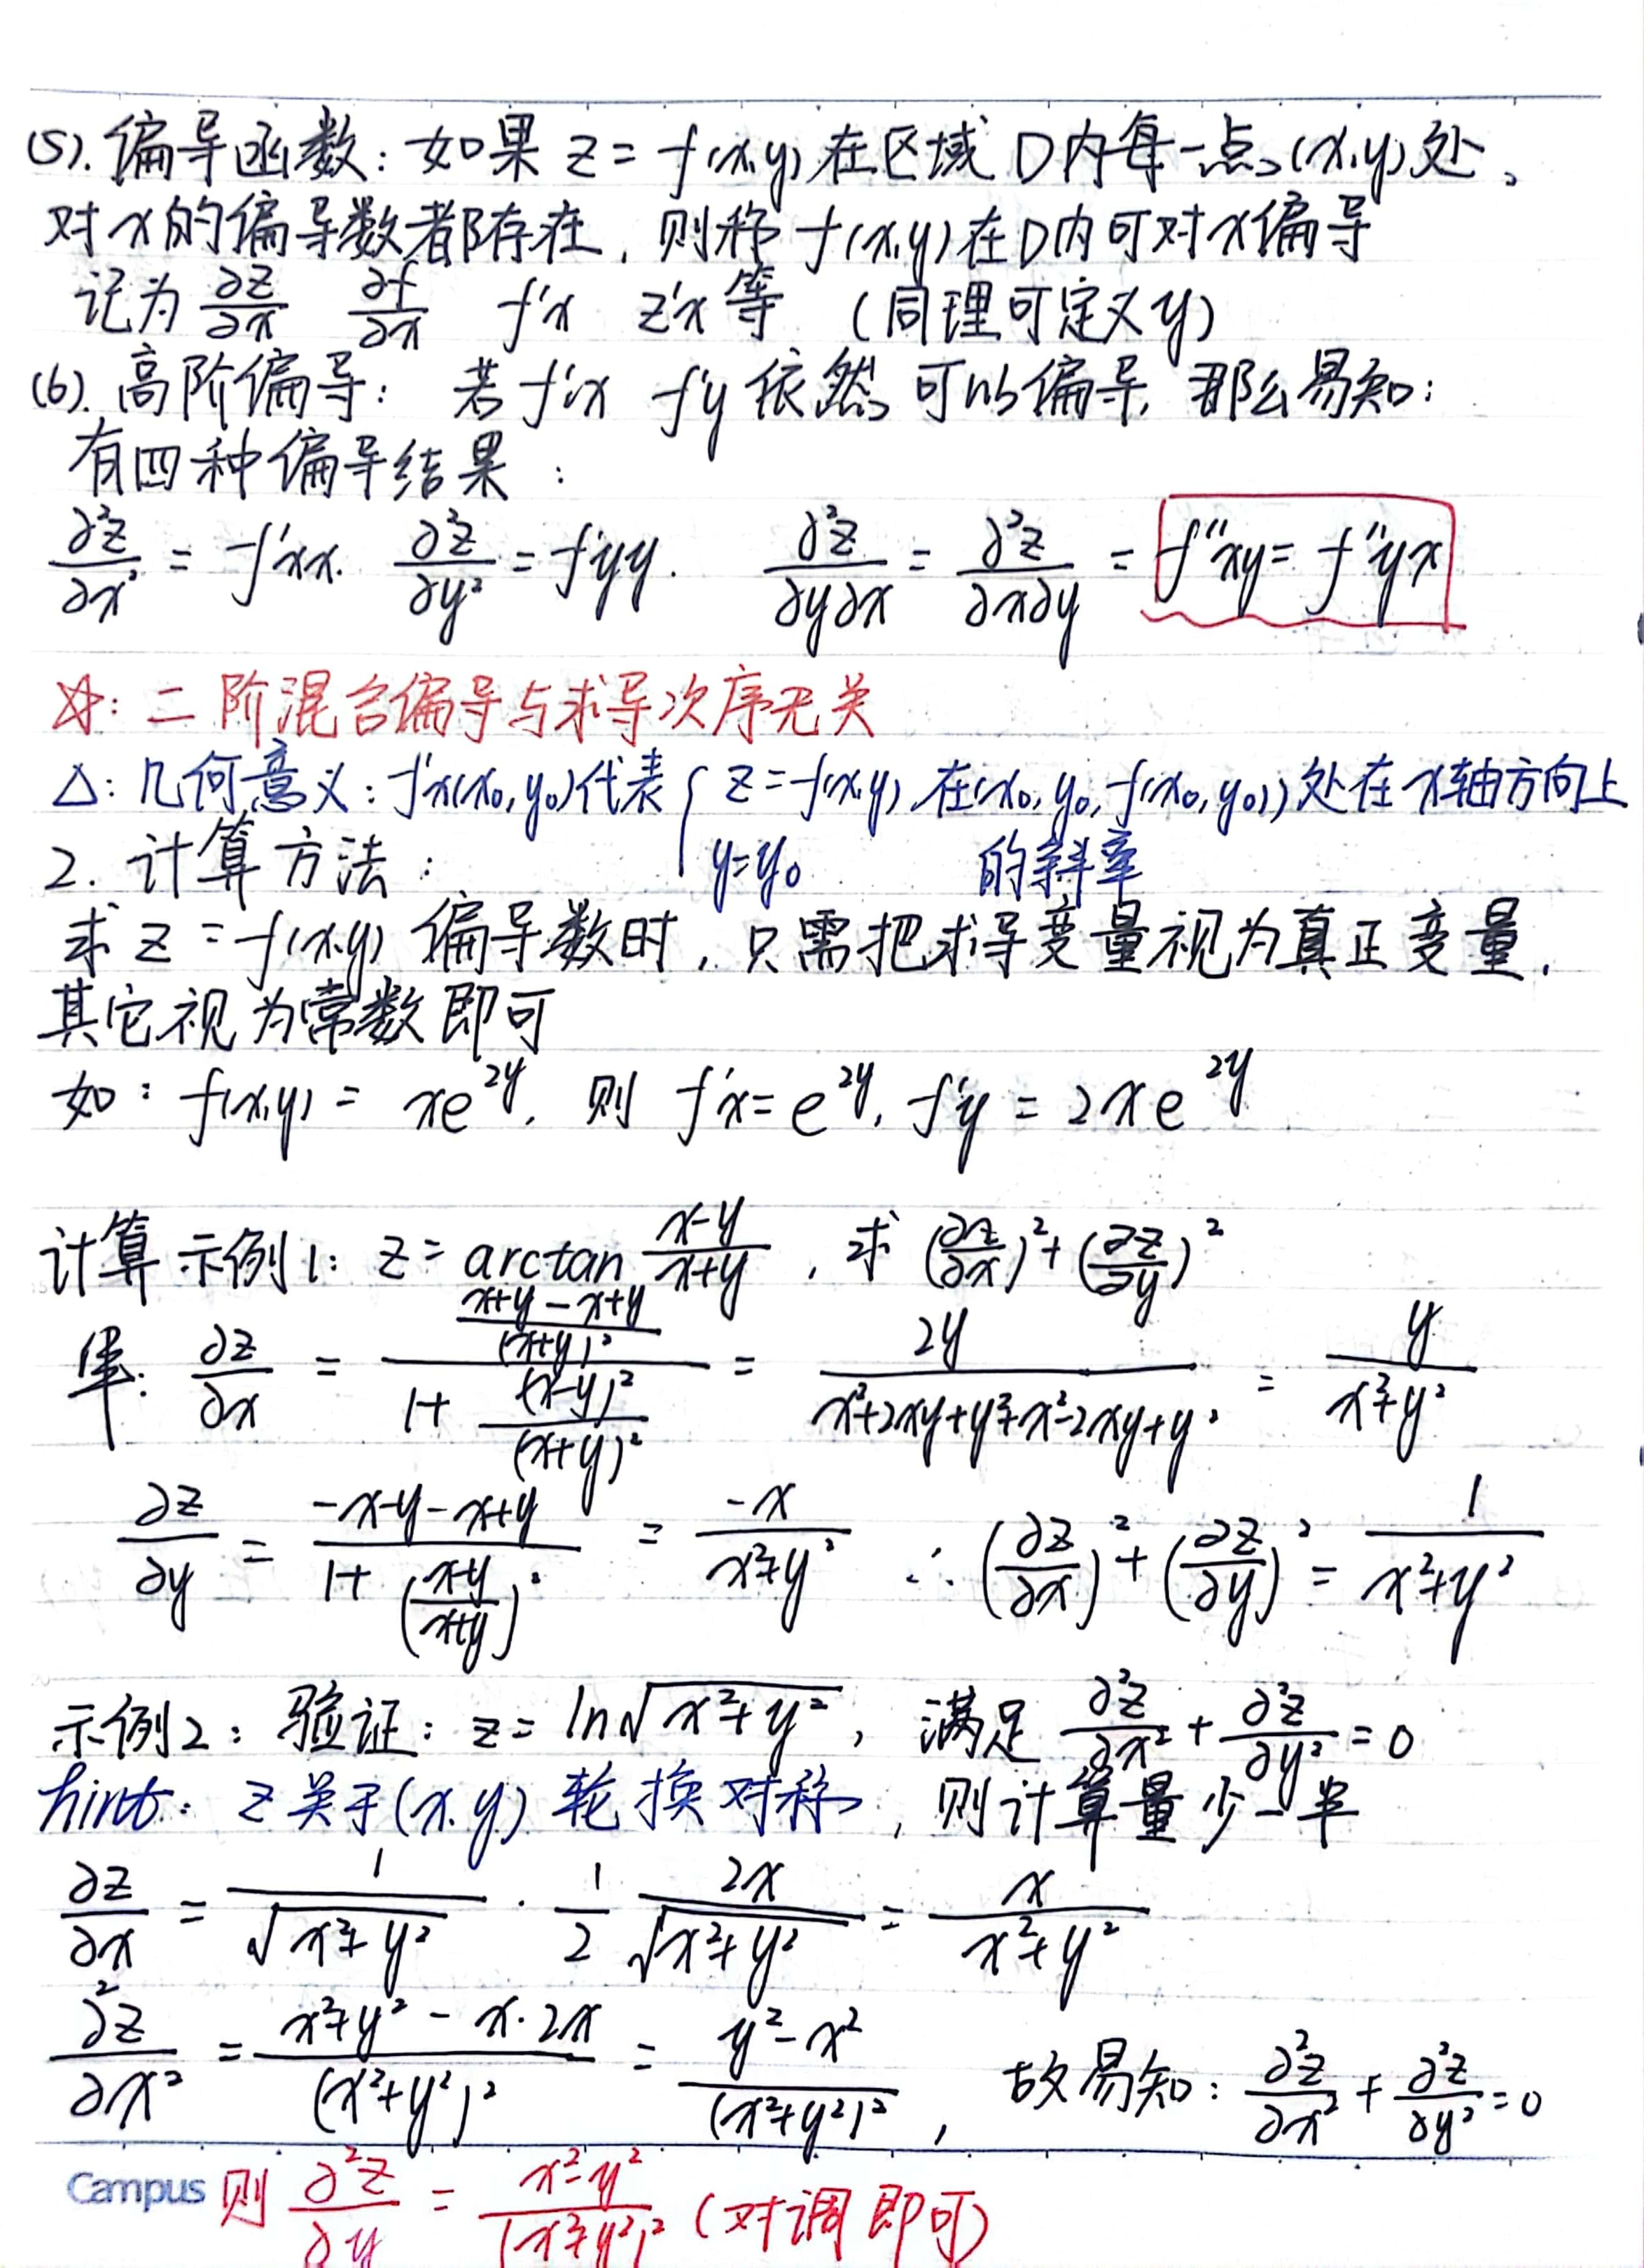 (5). 偏导函数: 如果 z = f(x,y) 在区域 D内每一点 (x,y) 处,
对 x 的偏导数都存在, 则称 f(x,y) 在D内可对x偏导
记为 ∂z/∂x ∂f/∂x f'x z'x 等 (同理可定义 y)
(6). 高阶偏导: 若 f'x f'y 依然可以偏导, 那么易知:
有四种偏导结果:
∂²z/∂x² = f'xx. ∂²z/∂y² = f'yy. ∂²z/∂y∂x = ∂²z/∂x∂y = f''xy = f''yx
☆: 二阶混合偏导与求导次序无关
△: 几何意义: f'x(x₀,y₀)代表 { z=f(x,y) 在(x₀,y₀,f(x₀,y₀))处在x轴方向上
y=y₀ 的斜率
2. 计算方法:
求 z = f(x,y) 偏导数时, 只需把求导变量视为真正变量.
其它视为常数即可
如: f(x,y) = xe^{2y}, 则 f'x = e^{2y}, f'y = 2xe^{2y}
计算示例1: z = arctan (x-y)/(x+y), 求 (∂z/∂x)² + (∂z/∂y)²
∂z/∂x = ((x+y-x+y)/(x+y)²)/(1+(x-y)²/(x+y)²) = 2y/(x²+2xy+y²+x²-2xy+y²) = y/(x²+y²)
∂z/∂y = (-x-y-x+y)/(1+((x-y)/(x+y))²) = -x/(x²+y²) ∴ (∂z/∂x)² + (∂z/∂y)² = 1/(x²+y²)
示例2: 验证: z = ln√(x²+y²), 满足 ∂²z/∂x² + ∂²z/∂y² = 0
hint: z关于(x,y) 轮换对称, 则计算量少一半
∂z/∂x = 1/√(x²+y²) · 1/2 2x/√(x²+y²) = x/(x²+y²)
∂²z/∂x² = (x²+y²-x·2x)/(x²+y²)² = (y²-x²)/(x²+y²)², 故易知: ∂²z/∂x² + ∂²z/∂y² = 0
Campus 则 ∂²z/∂y = (x²-y²)/(x²+y²)² (对调即可)